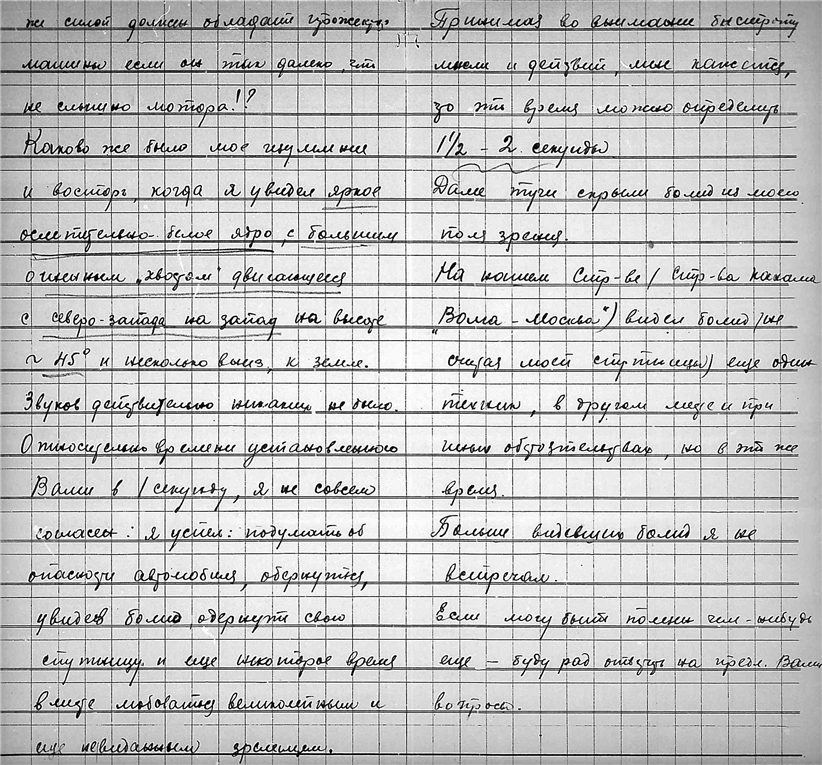 же силой должен обладать прожектор
машины если он так далеко, что
не слышно мотора!?
Каково же было мое изумление
и восторг, когда я увидел яркое
ослепительно-белое ядро, с большим
огненным „хвостом" двигающееся
с северо-запада на запад на высоте
~ 45° и несколько вниз, к земле.
Звуков действительно никаких не было.
Относительно времени установленного
Вами в 1 секунду, я не совсем
согласен: я успел: подумать об
опасности автомобиля, обернуться,
увидев болид, одернуть свою
спутницу и еще некоторое время
в лице любоваться великолепным и
еще невиданным зрелищем.
Принимая во внимание быстроту
мысли и действий, мне кажется,
за это время можно определить
1½ – 2 секунды
Далее тучи скрыли болид из моего
поля зрения.
На нашем Стр-ве (Стр-ва канала
„Волга-Москва") видел болид (не
считая моей спутницы) еще один
техник, в другом месте и при
иных обстоятельствах, но в это же
время.
Больше видевших болид я не
встречал.
Если могу быть полезен чем-нибудь
еще – буду рад ответить на предл. Вами
вопросы.